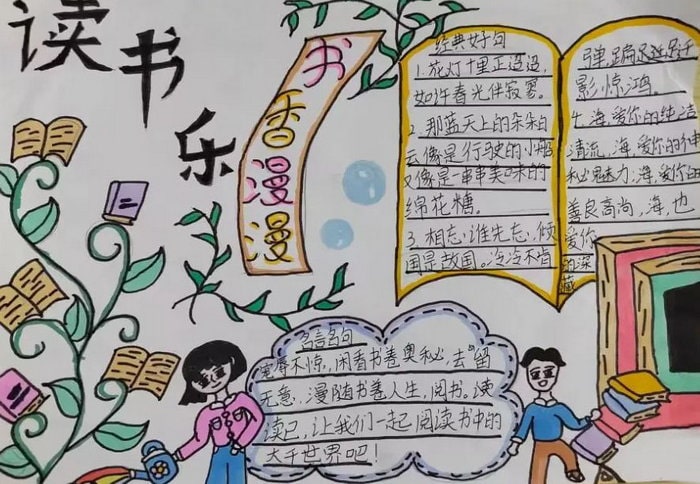 读书乐
书香漫漫
经典好句
1.花灯十里正迢迢,
如许春光伴寂寥。
2.那蓝天上的朵朵白
云像是行驶的小船
又像是一串串美味的
棉花糖。
3.相忘,谁先忘,倾
国是故国。泠泠不肯
弹,蹁跹影
惊鸿。
4.海,爱你的纯洁
清流,海,爱你的神
秘魅力,海,爱你的
善良高尚,海,也
爱你
的深
名言名句
宠辱不惊,闲看书卷奥秘,去留
无意,漫随书卷人生,阅书,
读己,让我们一起阅读书中的
大千世界吧!